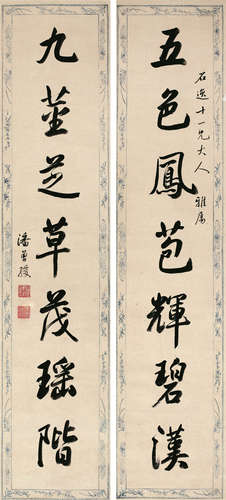 五色鳳苞輝碧漢
石逸十一兄大人
雅屬
九莖芝草茂瑤階
潘曾綬